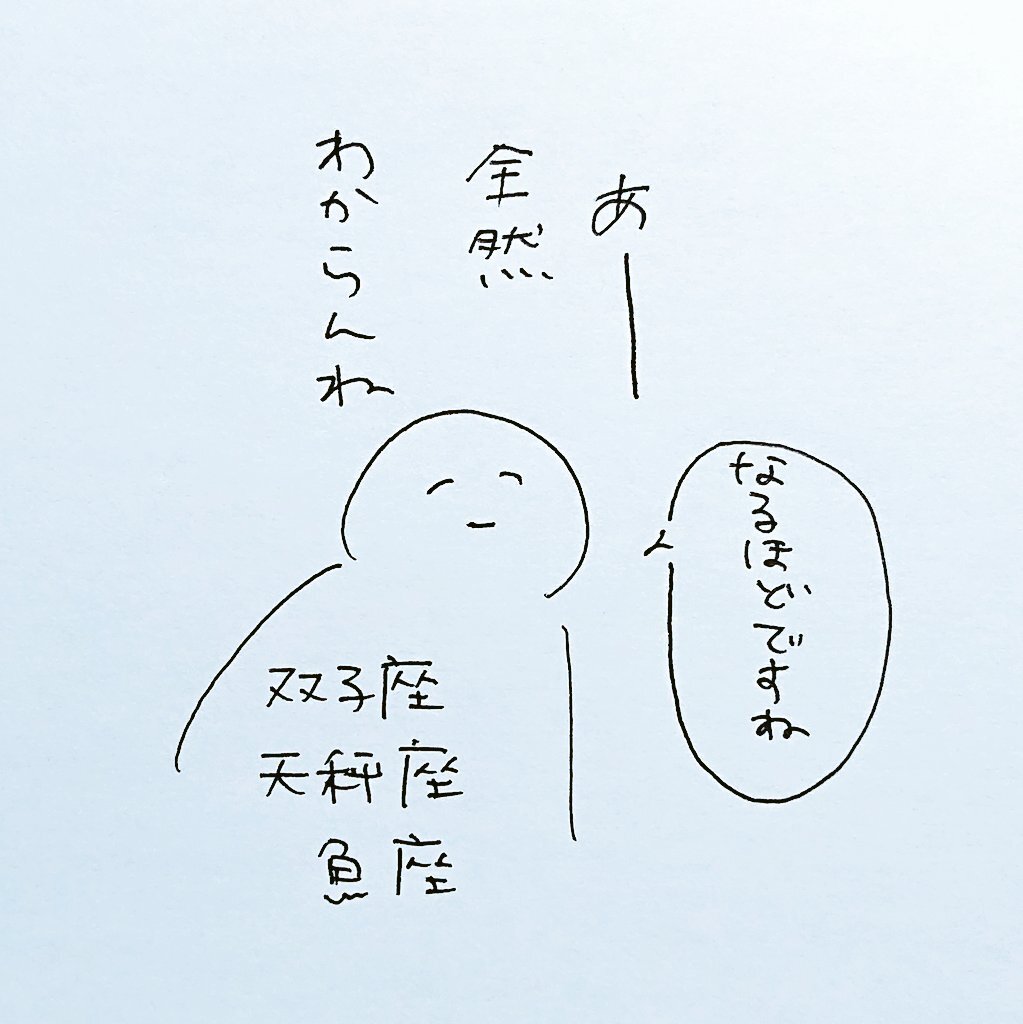 あー
全然
わからんね
なるほどですね
双子座
天秤座
魚座